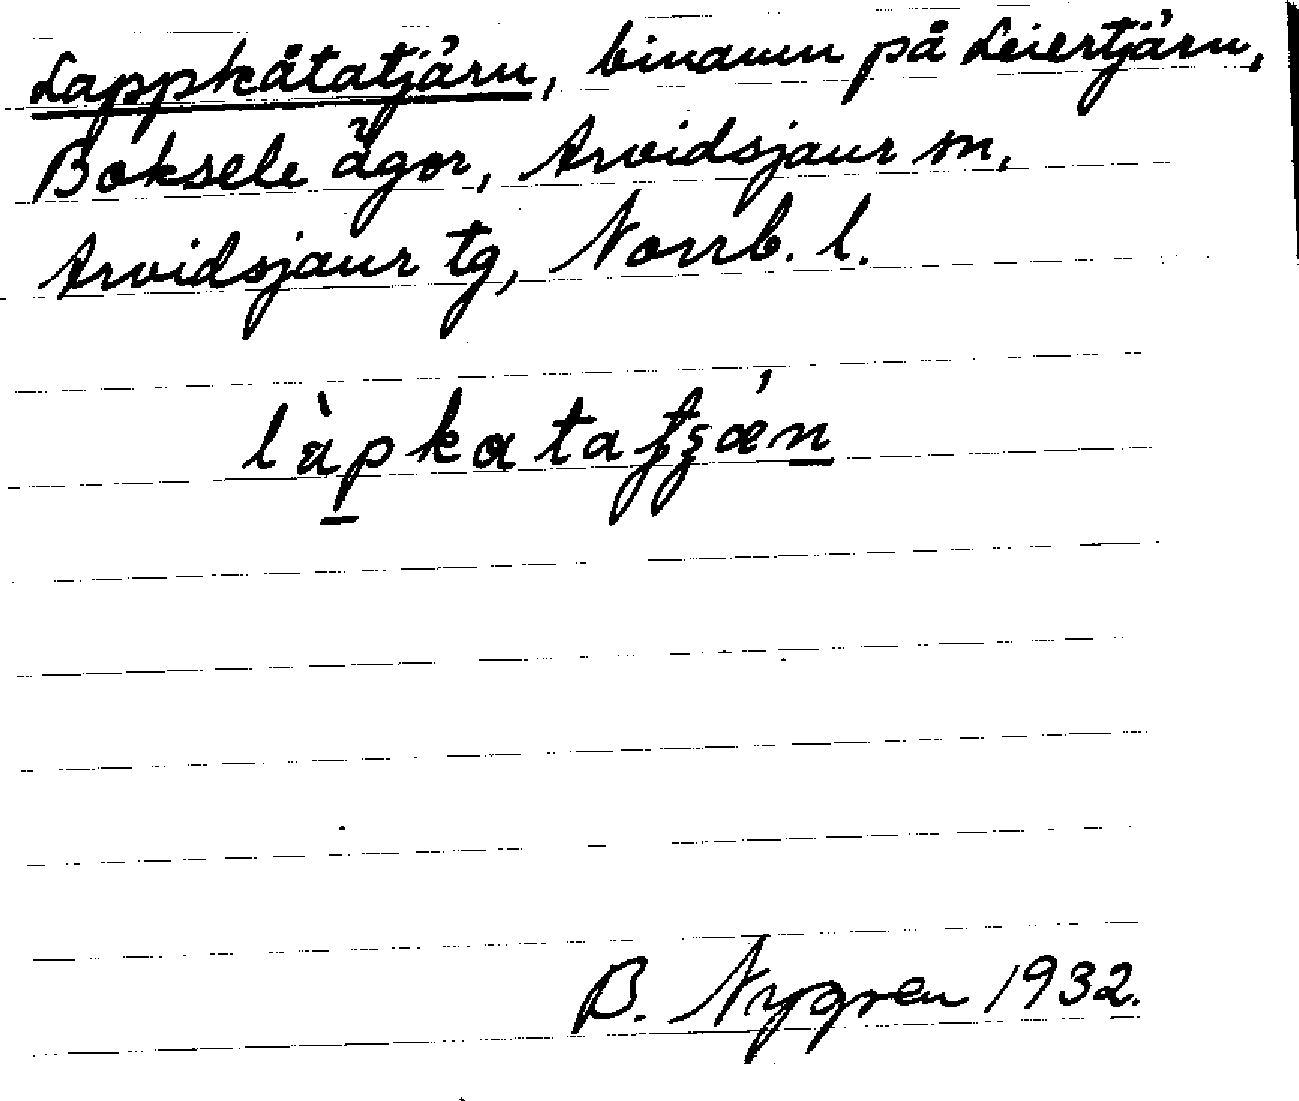 Lappkåtatjärn, binamn på Leiertjärn,
Boksele ägor, Arvidsjaur sn,
Arvidsjaur tg, Norrb. l.
làpkatatʒǽn
B. Nygren 1932.